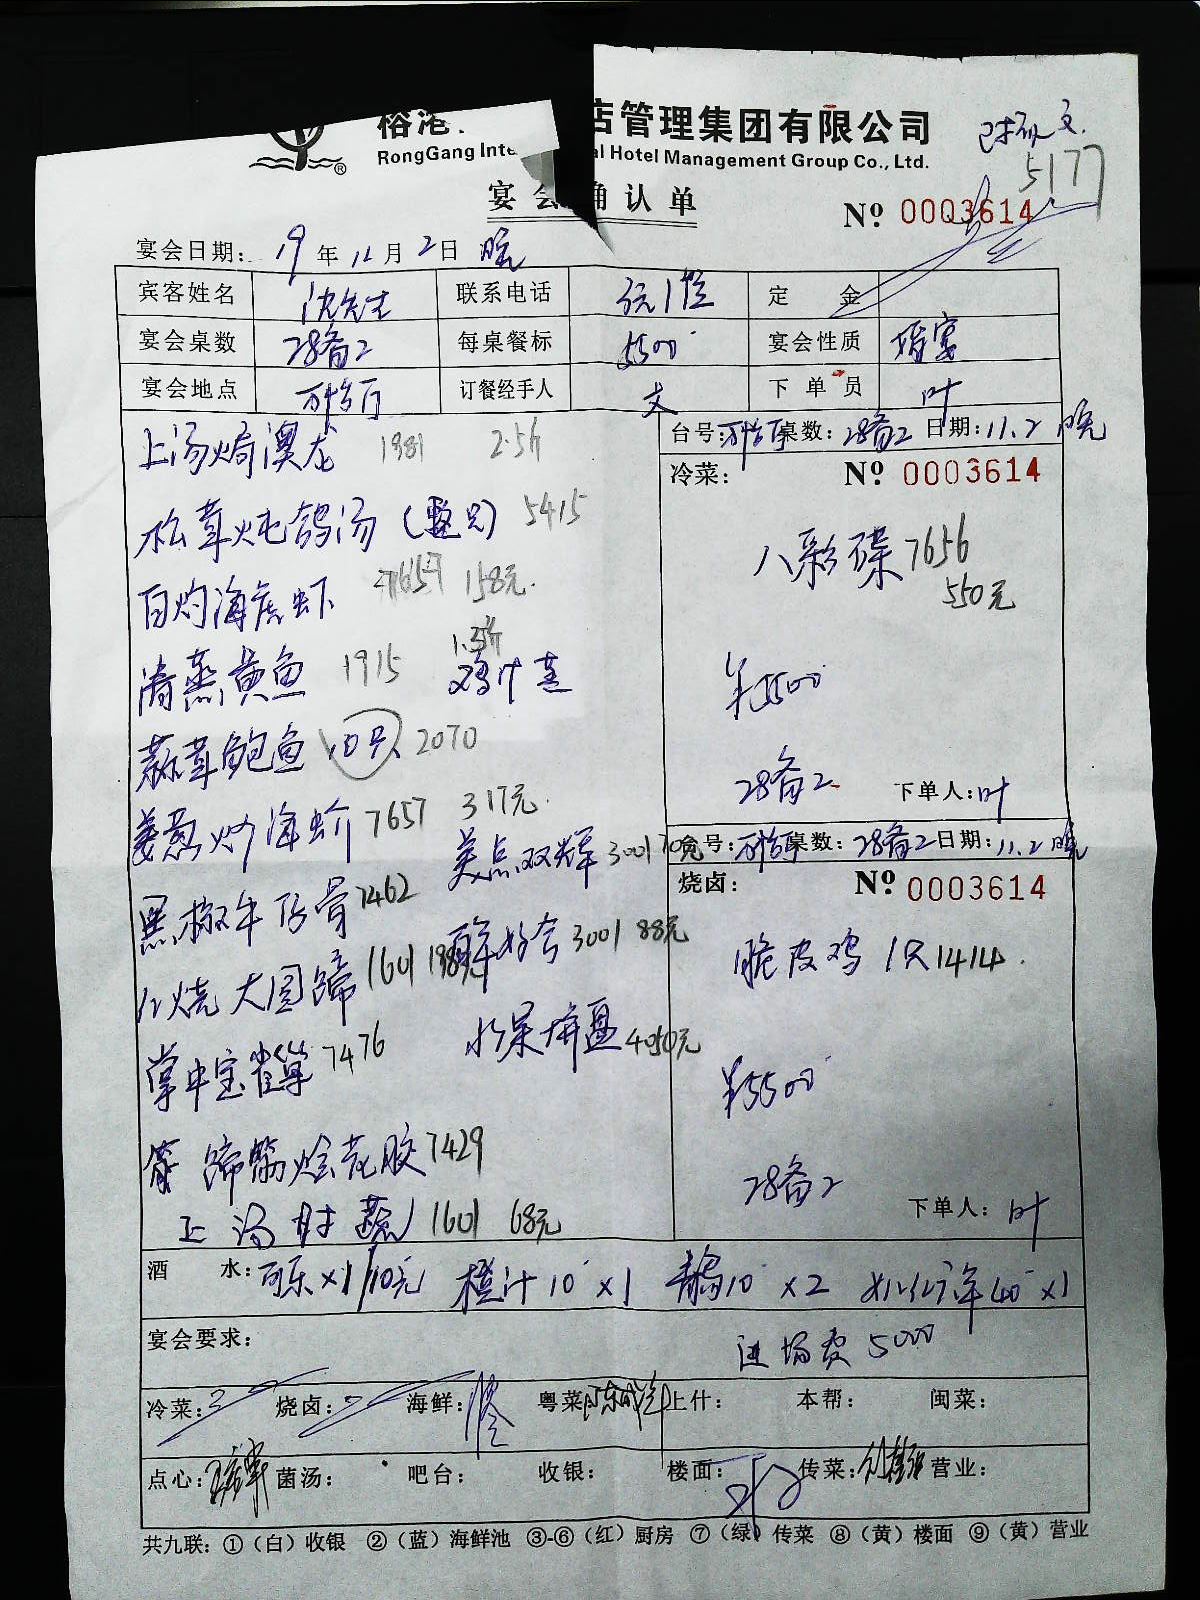 榕港 店管理集团有限公司
RongGang Inte al Hotel Management Group Co., Ltd.
5177
宴会确认单
№ 0003614
宴会日期: 19年11月2日 晚
宾客姓名 沈先生 联系电话 定金
宴会桌数 28备2 每桌餐标 5500 宴会性质 婚宴
宴会地点 订餐经手人 文 下单员 叶
上汤焗澳龙 1981 2.5斤
松茸炖鸽汤(整只) 5415
白灼海虎虾 7657 158元
清蒸黄鱼 1915 1.5斤 鸡汁蒸
蒜茸鲍鱼 10只 2070
姜葱炒海蚧 7657 317元
美点双辉 3001 70元
黑椒牛仔骨 7462
3001 88元
红烧大圆蹄 1601 198元
水果拼盘 4050元
掌中宝雀巢 7476
蹄筋烩花胶 7429
上汤时蔬 1601 68元
台号: 桌数: 28备2 日期: 11.2 晚
冷菜: № 0003614
八彩碟 7656
550元
¥5500
28备2 下单人: 叶
台号: 桌数: 28备2 日期: 11.2 晚
烧卤: № 0003614
脆皮鸡 1只 1414
¥5500
28备2
下单人: 叶
酒水: 可乐×1/10元 橙汁10×1 10×2 40×1
宴会要求:
进场费5000
冷菜: 烧卤: 海鲜: 粤菜: 上什: 本帮: 闽菜:
点心: 菌汤: 吧台: 收银: 楼面: 传菜: 营业:
共九联: ①(白)收银 ②(蓝)海鲜池 ③-⑥(红)厨房 ⑦(绿)传菜 ⑧(黄)楼面 ⑨(黄)营业